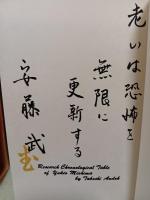 老いは恐怖を
無限に
更新する
安藤 武
Research Chronological Table
of Yukio Mishima
by Takeshi Andoh